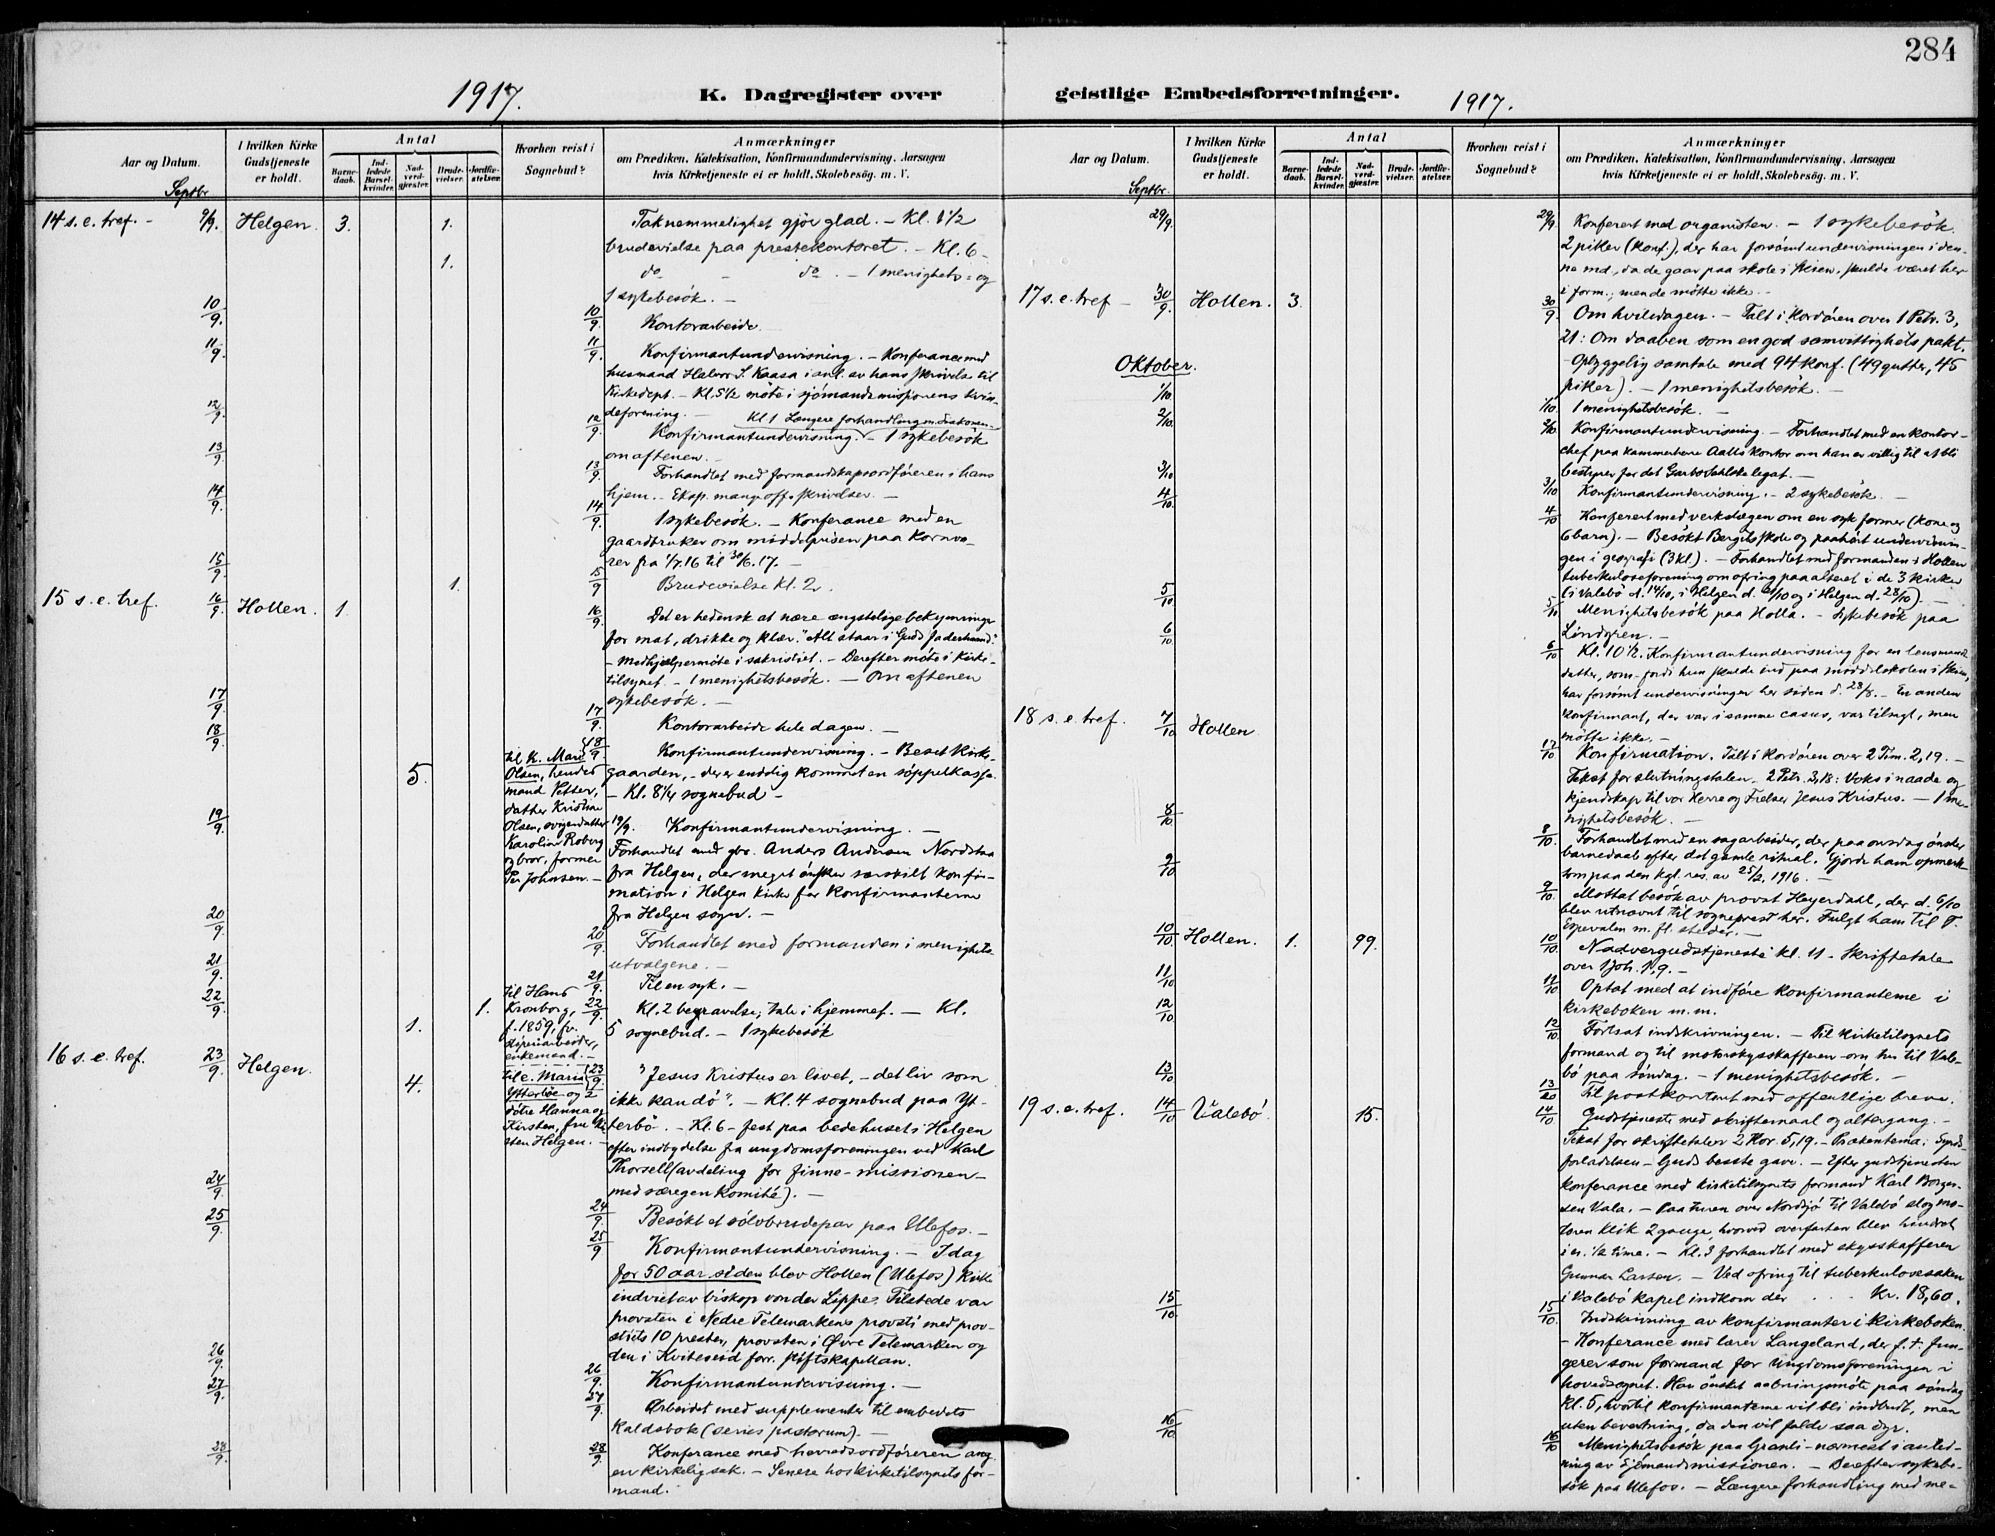 284
1917.
K. Dagregister over
geistlige Embedsforretninger.
1917.
Aar og Datum.
I hvilken Kirke
Gudstjeneste
er holdt.
Antal
Barne-
daab.
Ind-
ledede
Barsel-
kvinder.
Nad-
verd-
gjester.
Brude-
vielser.
Jordfæ-
stelser.
Hvorhen reist i
Sognebud?
Anmærkninger
om Prædiken, Katekisation, Konfirmandundervisning, Aarsagen
hvis Kirketjeneste ei er holdt, Skolebesøg, m. V.
Septbr.
14 s. e. tref. - 9/9. Helgen. 3. 1.
Taknemmelighet gjör glad. - Kl. 1 1/2
brudevielse paa prestekontoret. - Kl. 6 -
1.
do - do. - 1 menighets- og
1 sykebesök. -
10/9. Kontorarbeide.
11/9. Konfirmantundervisning. - Konferance med
husmand Halvor S. Kaasa i anl. av hans skrivelse til
Kirkedept. - Kl. 5 1/2 möte i sjömandsmissionens kvin-
deforening. -
Kl. 1 Længere forhandling m. diakonen.
12/9. Konfirmantundervisning. - 1 sykebesök
om aftenen. -
13/9. Forhandlet med formandskapsordföreren i hans
hjem. - Eksp. mange off. skrivelser. -
14/9. 1 sykebesök. - Konferance med en
gaardbruker om middelprisen paa kornva-
rer fra 1/7.16 til 30/6.17. -
15/9 1. Brudevielse kl. 2. -
15 s. e. tref. 16/9. Hollen. 1.
Det er hedensk at nære ængstelige bekymringer
for mat, drikke og klær. "Alt staar i Guds faderhaand."
- Medhjælpermöte i sakristiet. - Derefter möte i kirke-
tilsynet. - 1 menighetsbesök. - Om aftenen
sykebesök. -
17/9. Kontorarbeide hele dagen. -
18/9 Konfirmantundervisning. - Beset kirke-
gaarden, - der er endelig kommet en söppelkasse.
- Kl. 8 1/4 sognebud -
5.
til k. Marie
Olsen, hendes
mand Petter,
datter Kristine
Olsen, svigerdatter
Karoline Roberg
og bror, former
Per Johnsen. -
19/9. Konfirmantundervisning. -
Forhandlet med gbr. Anders Andersen Nordstaa
fra Helgen, der meget önsker særskilt konfir-
mation i Helgen kirke for konfirmanterne
fra Helgen sogn. -
20/9. Forhandlet med formanden i menighets-
utvalgene. -
21/9. Til en syk. -
22/9. 1. Kl. 2 begravelse, tale i hjemmet. - Kl.
5 sognebud. - 1 sykebesök
1.
til Hans
Kronborg,
f. 1859, fv.
enkemand. -
16 s. e. tref. 23/9. Helgen. 4.
til e. Marie
Ytterböe og 2
döttre Hanna og
Kirsten, fru Kir-
sten Helgen. -
"Jesus Kristus er livet, - det liv som
ikke kan dö". - Kl. 4 sognebud paa Yt-
terbö. - Kl. 6 - fest paa bedehuset i Helgen
efter indbydelse fra ungdomsforeningen ved Karl
Thorsell (avdeling for finne-missionen -
med særegen komité). -
24/9. Besökt et sölvbrudepar paa Ulefos. -
25/9 Konfirmantundervisning. - Idag
for 50 aar siden blev Hollen (Ulefos) kirke
indviet av biskop von der Lippe. Tilstede var
provsten i Nedre Telemarkens provsti med prov-
stiets 10 prester, provsten i Øvre Telemarken og
den i Kviteseid forr. stiftskapellan.
26/9. Konfirmantundervisning. -
27/9. Arbeidet med supplementer til embedets
kaldsbok (series pastorum). -
28/9. Konferance med herredsordföreren ang.
en kirkelig sak. - Senere hos kirketilsynets for-
mand.
Aar og Datum.
I hvilken Kirke
Gudstjeneste
er holdt.
Antal
Barne-
daab.
Ind-
ledede
Barsel-
kvinder.
Nad-
verd-
gjester.
Brude-
vielser.
Jordfæ-
stelser.
Hvorhen reist i
Sognebud?
Anmærkninger
om Prædiken, Katekisation, Konfirmandundervisning, Aarsagen
hvis Kirketjeneste ei er holdt, Skolebesøg, m. V.
Septbr.
29/9. Konferert med organisten. - 1 sykebesök.
2 piker (konf.), der har forsömt undervisningen i den-
ne md., da de gaar paa skole i Skien, skulde været her
i form.; men de mötte ikke. -
17 s. e. tref - 30/9. Hollen. 3.
Om hviledagen. - Talt i kordören over 1 Petr. 3,
21: Om daaben som en god samvittighets pakt.
- Opbyggelig samtale med 94 konf. (49 gutter, 45
piker). - 1 menighetsbesök. -
Oktober.
1/10. 1 menighetsbesök. -
2/10. Konfirmantundervisning. - Forhandlet med en kontor-
chef paa kammerherre Aalls kontor om han er villig til at bli
bestyrer for det legat. -
3/10 Konfirmantundervisning. - 2 sykebesök. -
4/10. Konferert med verkslægen om en syk former (kone og
6 barn). - Besökt Bergits skole og paahört undervisnin-
gen i geografi (3 kl). - Forhandlet med formanden i Hollen
tuberkuloseforening om ofring paa alteret i de 3 kirker
(i Valebö d. 14/10, i Helgen d. 21/10 og i Helgen d. 28/10). -
5/10 Menighetsbesök paa Holla. - Sykebesök paa
Lindgren. -
6/10 Kl. 10 1/2. Konfirmantundervisning for en lensmands-
datter, som - fordi hun skulde ind paa middelskolen i Skien,
har forsömt undervisningen her siden d. 28/8. - En anden
konfirmant, der var i samme casus, var tilsagt, men
mötte ikke. -
18 s. e. tref. 7/10 Hollen
Konfirmation. Talt i kordören over 2 Tim. 2, 19. -
Tekst for slutningstalen. 2 Petr. 3, 18: Voks i naade og
kjendskap til vor Herre og Frelser Jesus Kristus. - 1 me-
nighetsbesök. -
8/10. Forhandlet med en sagarbeider, der paa onsdag önsker
barnedaab efter det gamle ritual. Gjorde ham opmerk-
som paa den kgl. res. av 25/2, 1916. -
9/10. Mottat besök av provst Heyerdahl, der d. 6/10
blev utnævnt til sogneprest her. Fulgt ham til F.
Espevalen m. fl. steder. -
10/10 Hollen. 1. 99.
Nadvergudstjeneste kl. 11 - Skriftetale
over 1 Joh. 1. 9. -
11/10 Optat med at indföre konfirmanterne i
kirkeboken m. m.
12/10. Fortsat indskrivningen. - Til kirketilsynets
formand og til motorskysskafferen om tur til Vale-
bö paa söndag. - 1 menighetsbesök. -
13/10 Til postkontoret med offentlige breve.
19 s. e. tref. 14/10 Valebö. 15.
Gudstjeneste med skriftemaal og altergang. -
Tekst for skriftetalen 2 Kor. 5, 19. - Prækentema: Synds-
forladelsen - Guds bedste gave. - Efter gudstjenesten
konferance med kirketilsynets formand Karl Borger-
sen Vala. - Paa turen over Nordsjö til Valebö slog mo-
toren klik 2 gange, hvorved overfarten blev hindret
i en 1/2 time. - Kl. 3 forhandlet med skysskafferen
Gunnar Larsen. - Ved ofring til tuberkulosesaken
i Valebö kapel indkom der . . . Kr. 18,60.
15/10. Indskrivning av konfirmanter i kirkeboken.
- Konferance med lærer Langeland, der f. t. fun-
gerer som formand for ungdomsforeningen i
hovedsognet. Har önsket aabningsmöte paa söndag
kl. 5, hvortil konfirmanterne vil bli indbudt, men
uten bevertning, da den vil falde saa dyr.
16/10 Menighetsbesök paa Granli - nærmest i anled-
ning av Sjömandsmissionen. - Derefter sykebe-
sök paa Ulefos. - Længere forhandling med me-